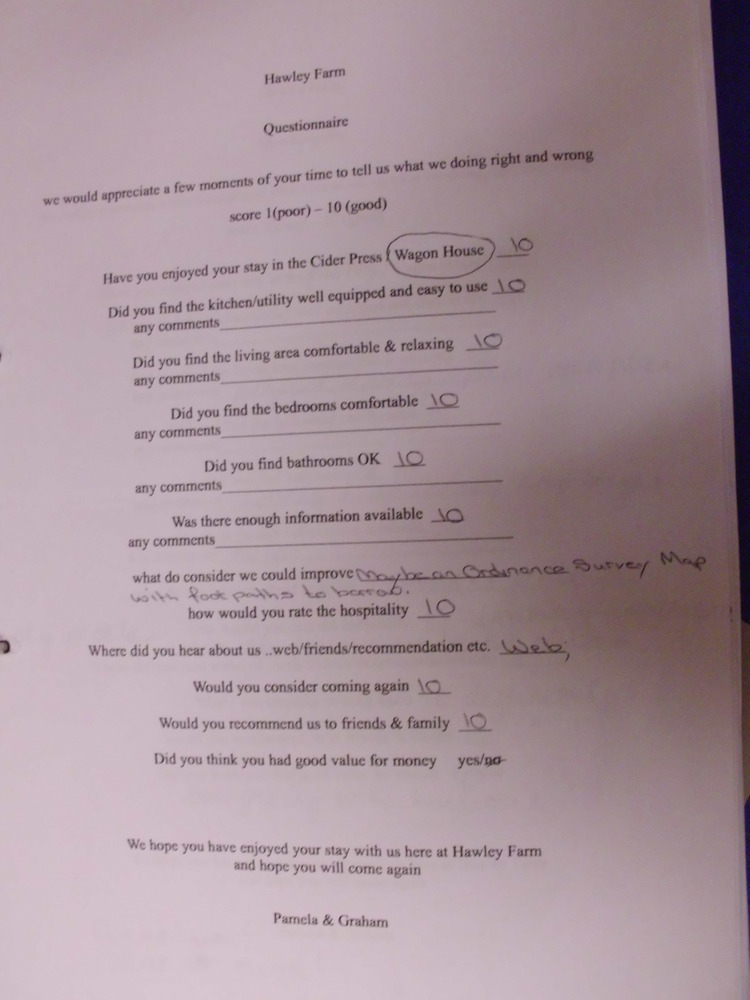 Hawley Farm
Questionnaire
we would appreciate a few moments of your time to tell us what we doing right and wrong
score 1(poor) – 10 (good)
Have you enjoyed your stay in the Cider Press / Wagon House 10
Did you find the kitchen/utility well equipped and easy to use 10
any comments
Did you find the living area comfortable & relaxing 10
any comments
Did you find the bedrooms comfortable 10
any comments
Did you find bathrooms OK 10
any comments
Was there enough information available 10
any comments
what do consider we could improve Maybe an Ordinance Survey Map
with foot paths to borrow.
how would you rate the hospitality 10
Where did you hear about us ..web/friends/recommendation etc. Web;
Would you consider coming again 10
Would you recommend us to friends & family 10
Did you think you had good value for money yes/no
We hope you have enjoyed your stay with us here at Hawley Farm
and hope you will come again
Pamela & Graham